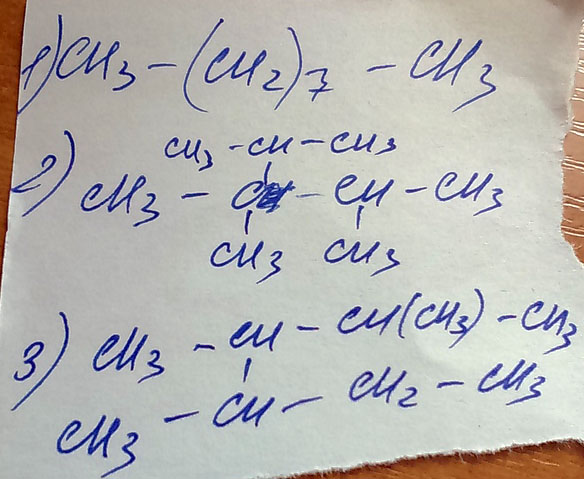 1) CH3 – (CH2)7 – CH3
CH3 – CH – CH3
2) CH3 – C – CH – CH3
CH3 CH3
3) CH3 – CH – CH(CH3) – CH3
CH3 – CH – CH2 – CH3